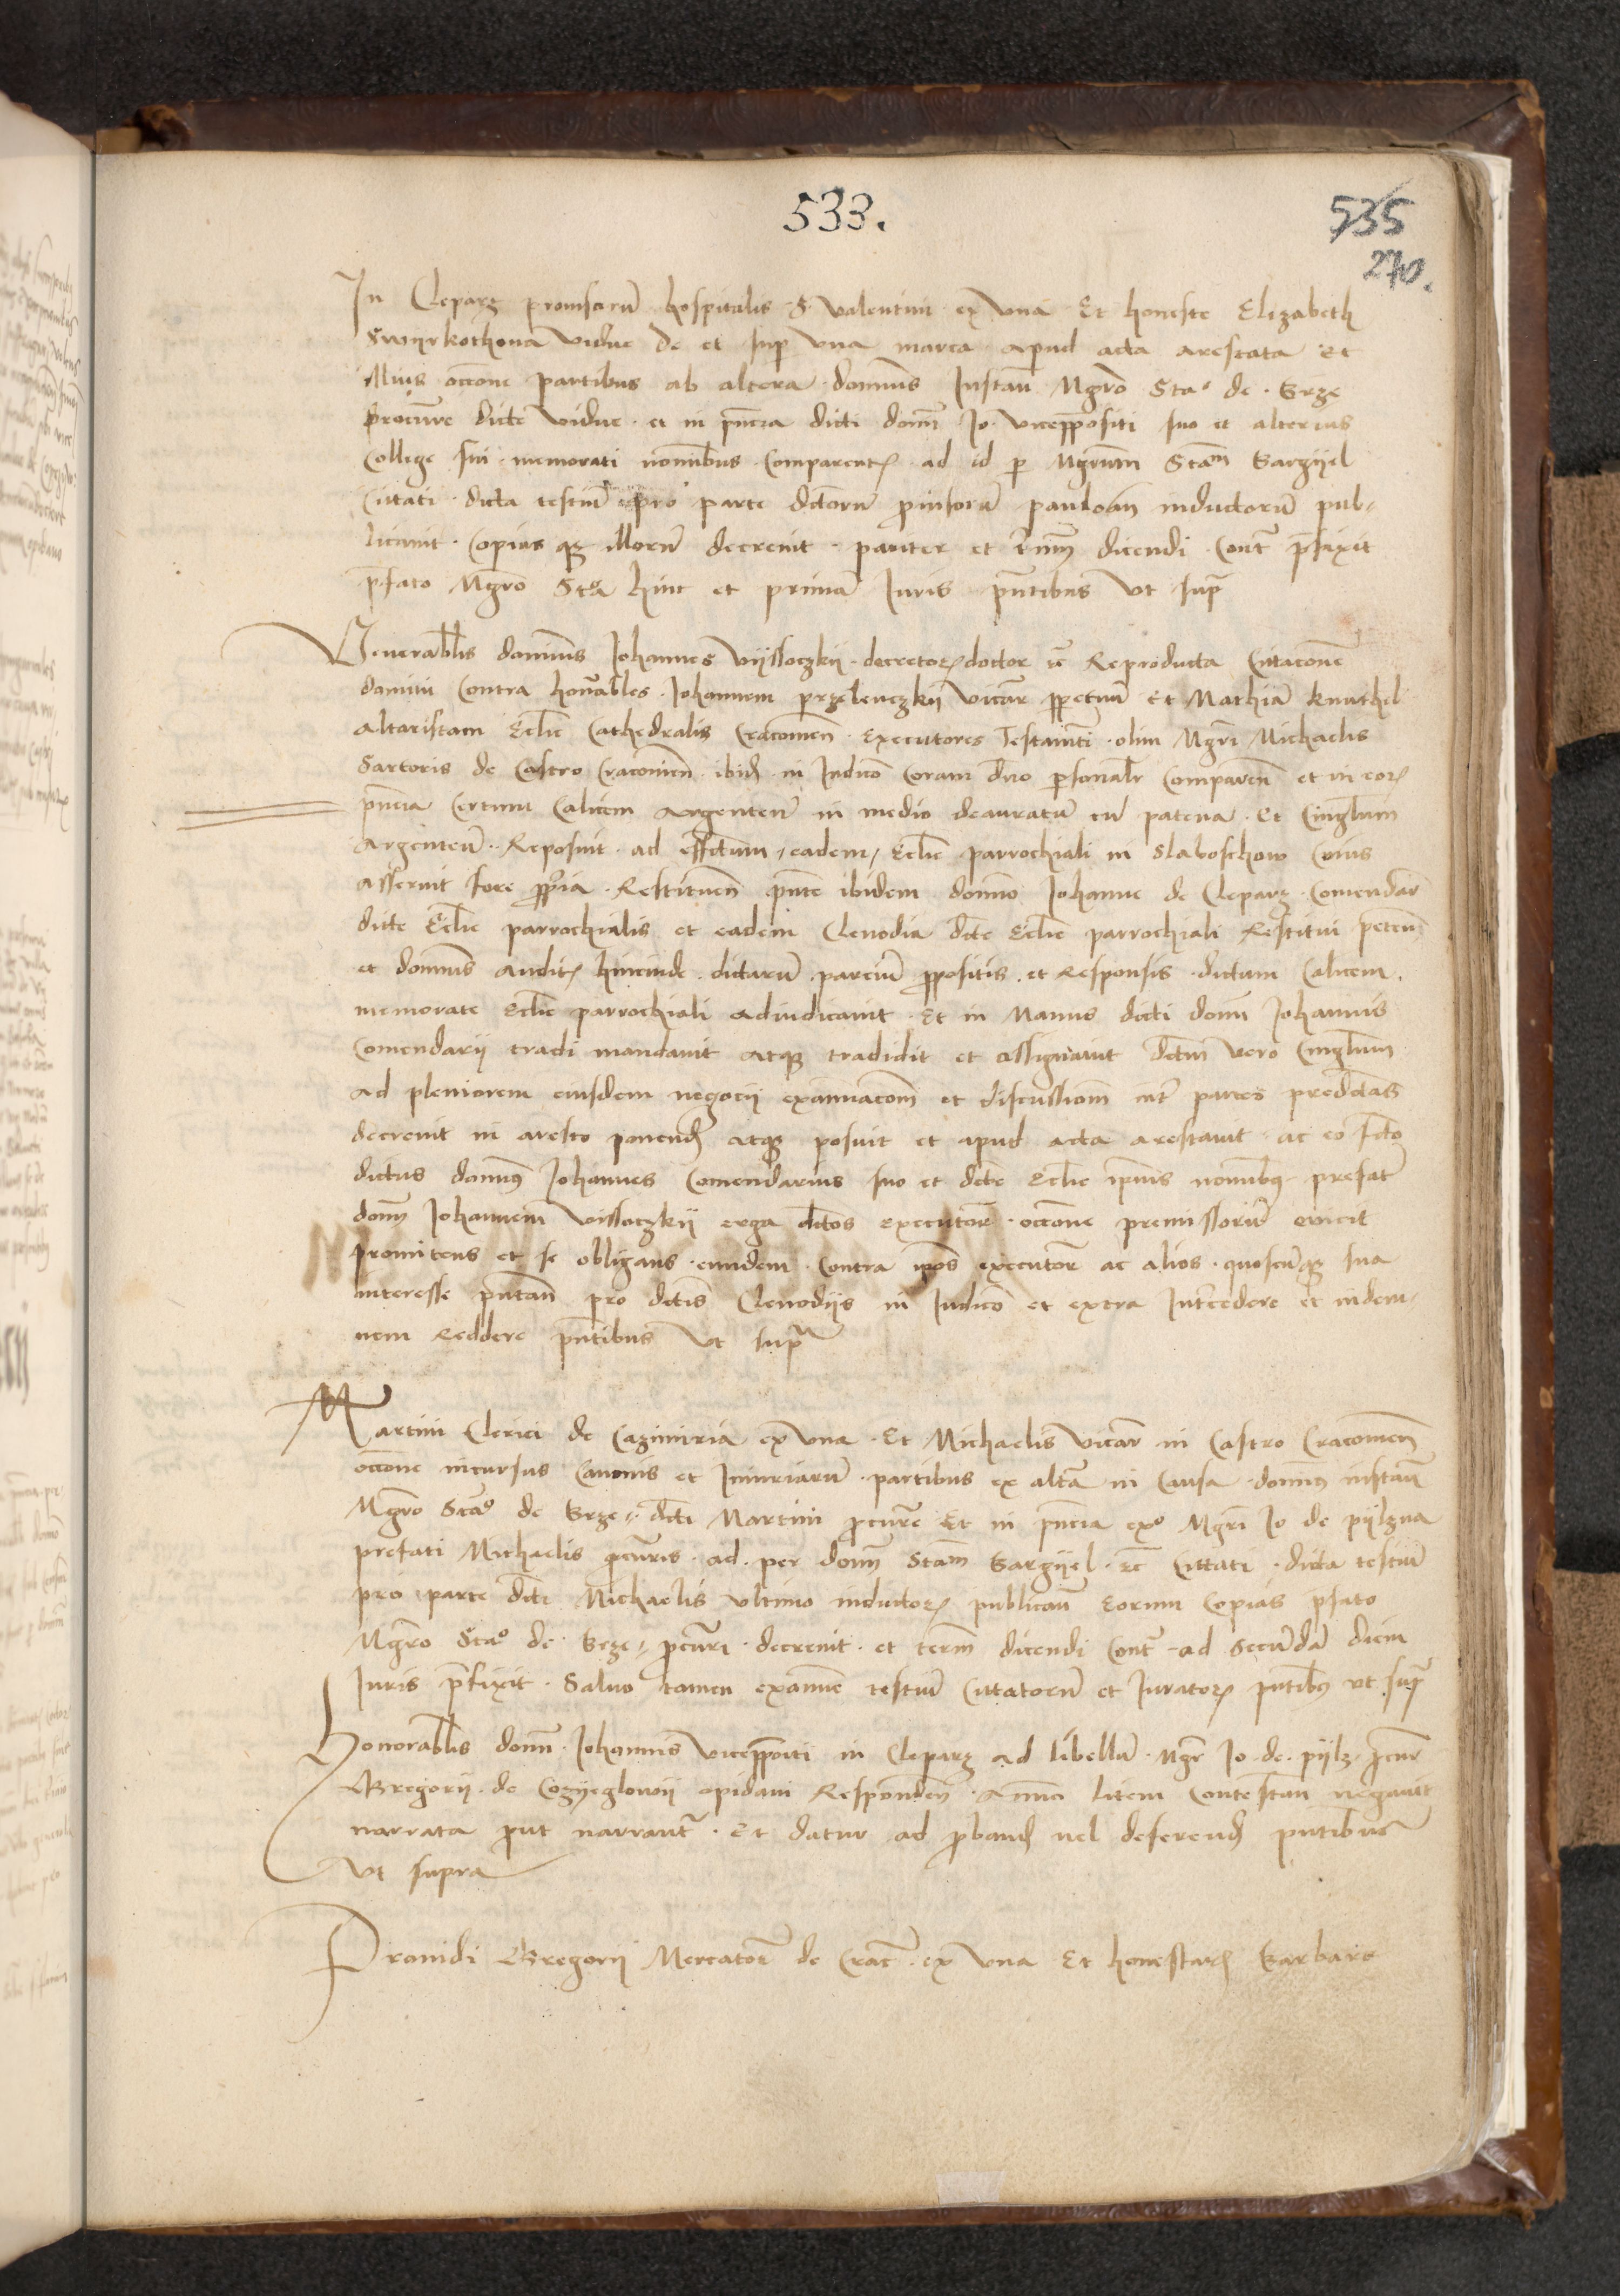 533.
535
270.
In Cleparz prouisorū hospitalis S. Valentini ex vna Et honeste Elizabeth
Swyrkothona vidue de et sup vna marca apud acta arestata Et
illius occōne partibus ab altera domnus Instañ Mgrō Sta° de Grze
procure dicte vidue et in pñcia dicti domī Jo. vicepp̄ositi suo et alterius
College sui memorati nominibus Comparentꝭ ad id p Mgrum Stam Gargyel
Citati dicta testiū pro parte dictorū prouisorū inductorū pub-
licauit Copias qꝫ illorū decreuit pariter et tīmū dicendi Cont p̄fixit
p̄fato Mgrō Sta hinc et primā Iuris pñtibus vt supra
Venerabilis dominus Johannes Wyssoczky decretorꝝ doctor ec Reproducta Citacōne
Contra honābles Johannem przelenczky vicar ppetuū Et Mathiā knuthel
Altaristam Ecclie Cathedralis Cracouien Executores Testamēti olim Mgri Michaelis
Sartoris de Castro Cracouien ibid in Iudicō Coram dno psonalr Comparen et in eorꝝ
pñcia Certum Calicem Argenteū in medio deauratū cū patena Et Cingulum
Argenteū Reposuit ad effectum eadem Ecclie parrochiali in Slaboschow Cuius
asseruit fore ppria Restituen pñte ibidem domino Johanne de Cleparz Comendār
dicte Ecclie parrochialis et eadem Clenodia dcte Ecclie parrochiali Restitui peteñ
et dominus auditꝭ hincinde dictarū parciū ppositis et Responsis dictum Calicem
memorate Ecclie parrochiali adiudicauit Et in Manus dicti domī Johannis
Comendarij tradi mandauit atqꝫ tradidit et assignauit dctm vero Cingulum
ad pleniorem eiusdem negocij examinacōm et discussiom int partes predctas
decreuit in aresto ponend atqꝫ posuit et apud acta arestauit ac eo fcto
dictus domnus Johannes Comendarius suo et dcte Ecclie nominibꝫ prefat
domū Johannem Wissoczky erga dctos executor occōne premissorū euicit
promittens et se obligans eundem Contra ipos executor ac alios quoscūqꝫ sua
interesse putañ pro dctis Clenodijs in Iudico et extra Intcedere et indem-
nem Reddere pñtibus vt supra
Martini Clerici de Cazimiria ex vna Et Michaelis vicar in Castro Cracouien
occōne incursus Canonis et Iniuriarū partibus ex altā in Causa domnus instañ
Mgro Sta° de Grze dcti Martini pcure Et in pñcia ex° Mgri Jo de pylzna
prefati Michaelis pcuris ad per domū Stam Gargyel ec Cittati dicta testiū
pro parte dcti Michaelis vltimo inductorꝝ publicañ eorum Copias pfato
Mgro Sta° de Grze pcuri decreuit et term dicendi Cont ad Secundā diem
Iuris p̄fixit Saluo tamen examine testiū Cittatorū et Iuratorꝝ pñtibꝫ vt supra
Honorabilis domī Johannis vicepp̄oiti in Cleparz ad libellū Mgr Jo de pylz pcur
Gregorij de Cozyeglowy opidani Responden animo litem Contestañ negauit
narrata put narrant Et datur ad pband vel deferend pñtibus
vt supra
Prouidi Gregorij Mercator de Crac ex vna Et honestarꝝ Barbare